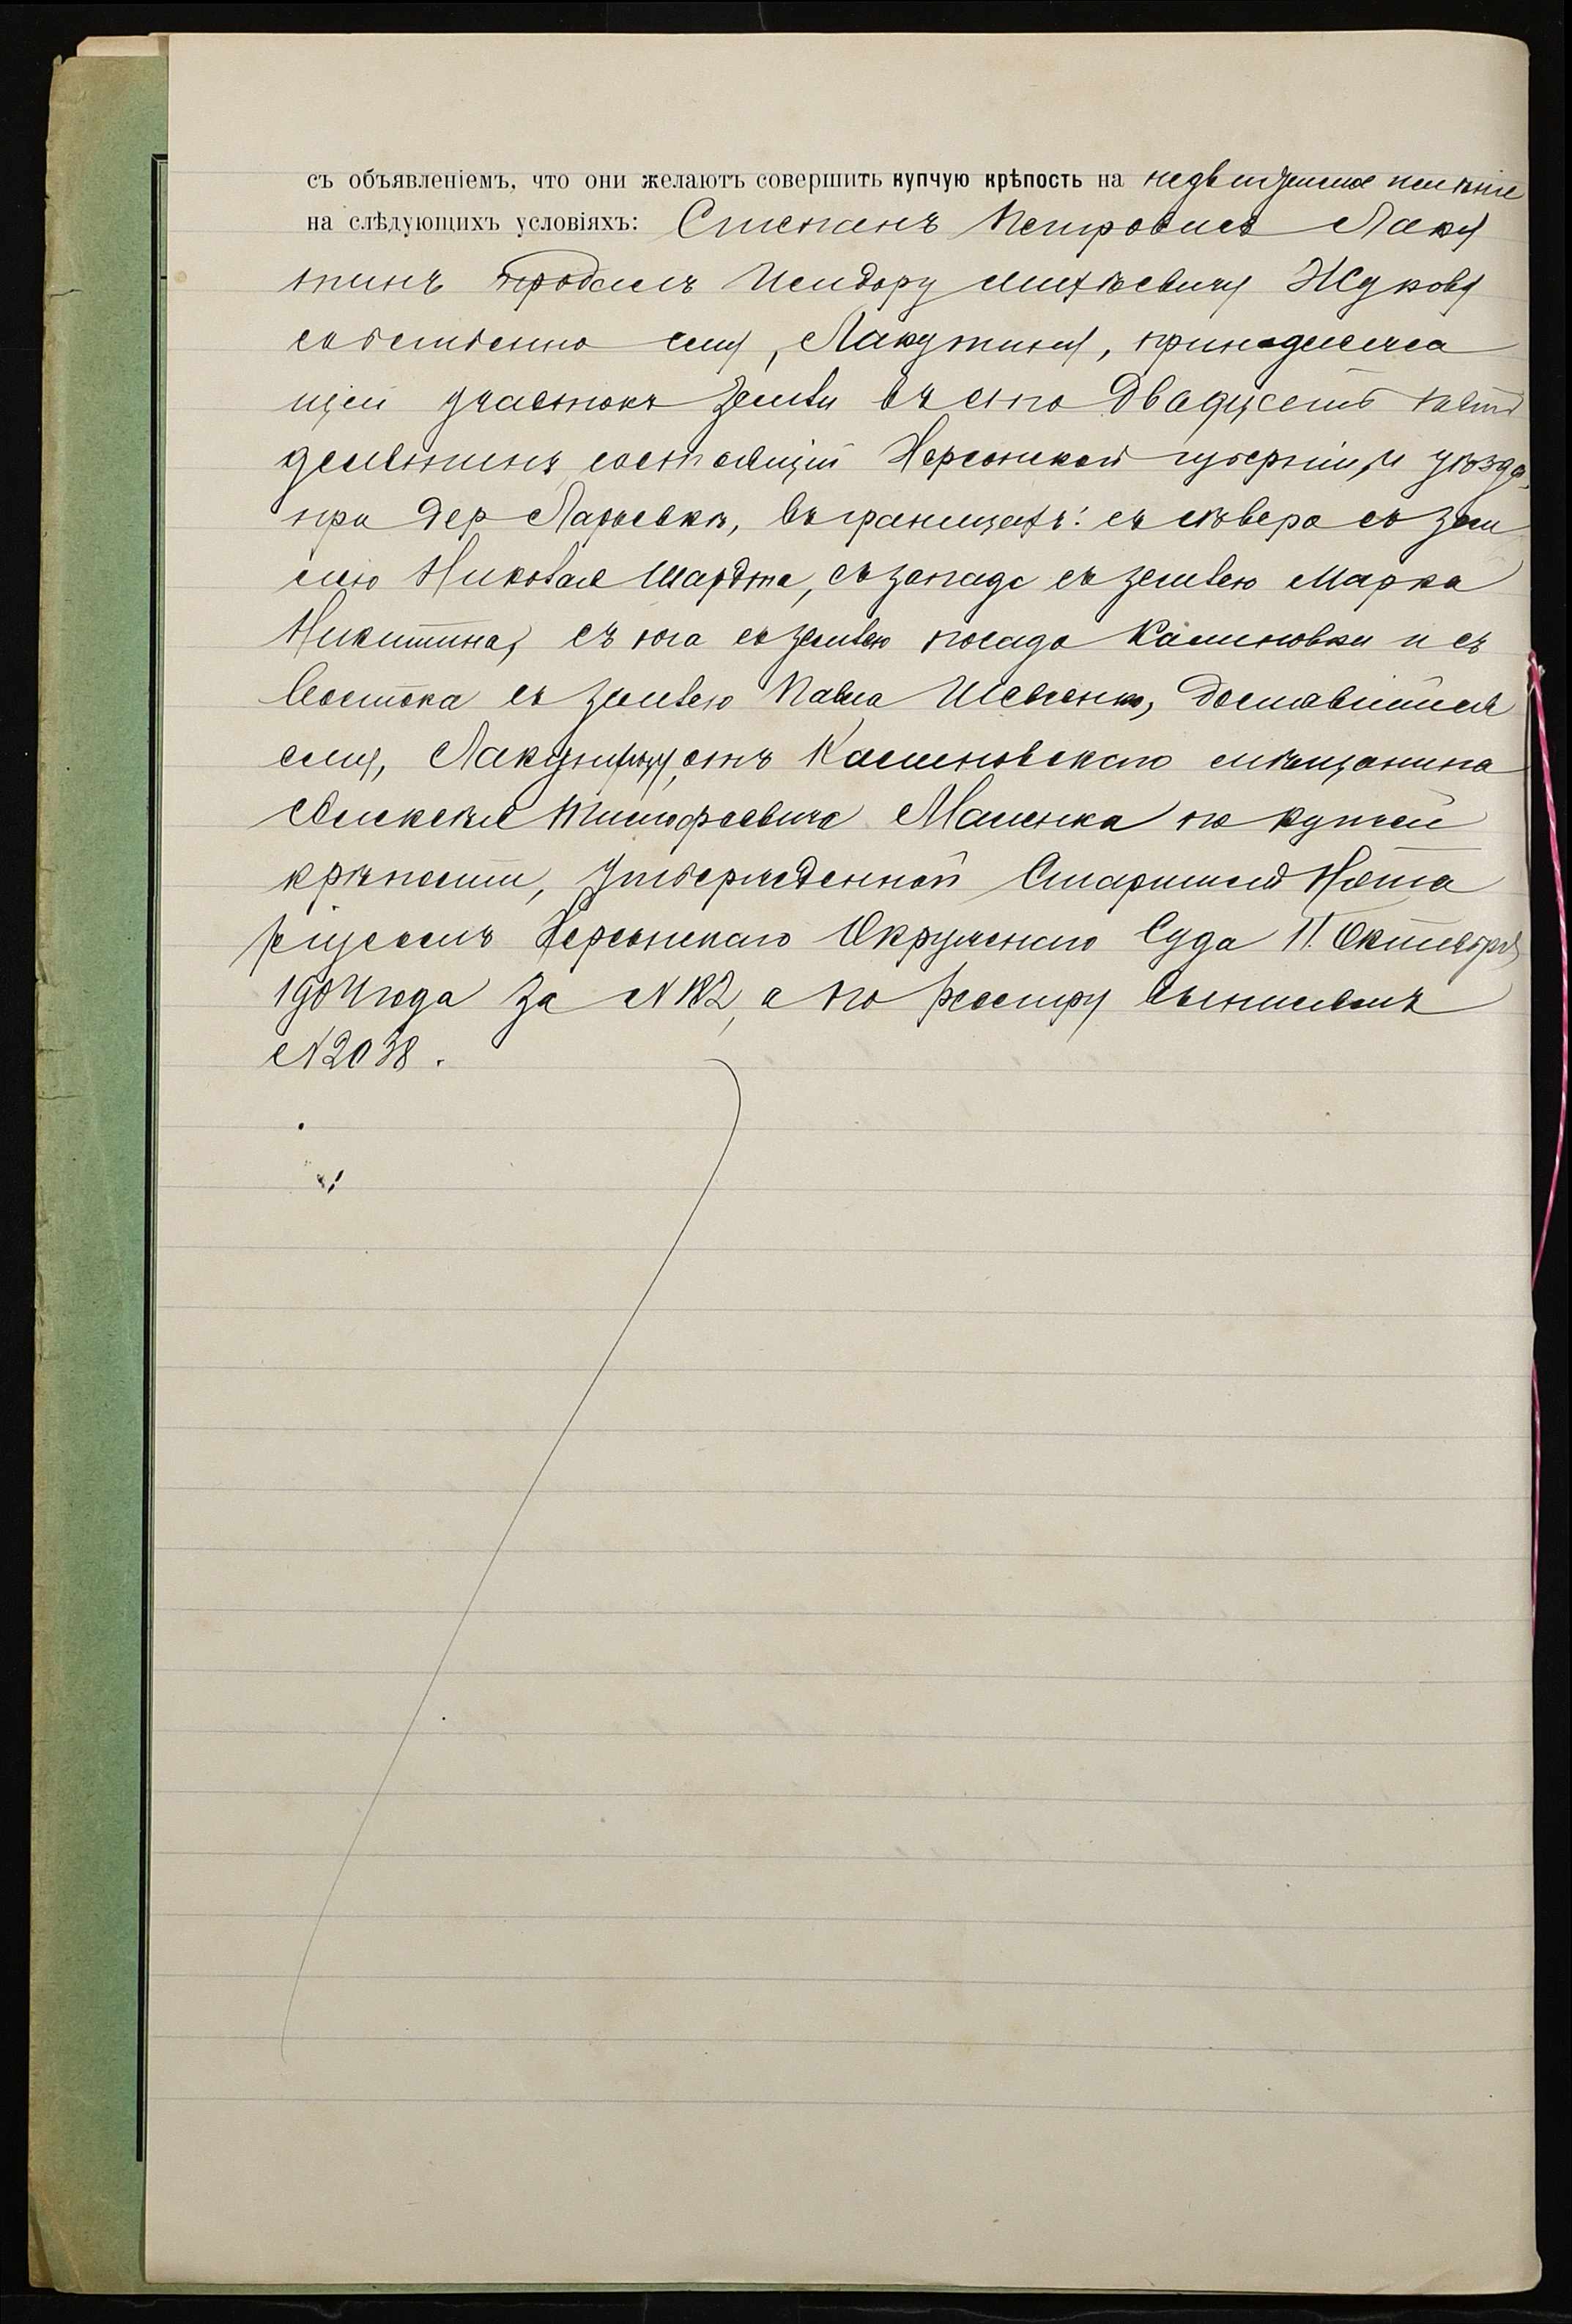 съ объявленіемъ, что они желаютъ совершить купчую крѣпость на недвижимое имѣніе
на слѣдующихъ условіяхъ: Степанъ Петровичъ Лаку
тинъ продалъ Исидору Михѣевичу Жукову
собственно ему, Лакутину, принадлежа
щій участокъ земли въ сто двадцать пять
десятинъ, состоящій Херсонской губерніи и уѣзда,
при дер Ларьевкѣ, въ границахъ: съ сѣвера съ зем
лею Николая Шардта, съ запада съ землею Марка
Никитина, съ юга съ землею посада Калиновки и съ
востока съ землею Павла Шевченко, доставшійся
ему, Лакутину, отъ Калиновскаго мѣщанина
Алексѣя Тимофеевича Маленка по купчей
крѣпости, утвержденной Старшимъ Нота
ріусомъ Херсонскаго Окружнаго Суда 11 Октября
1904 года за № 182, а по реестру
№ 2038.